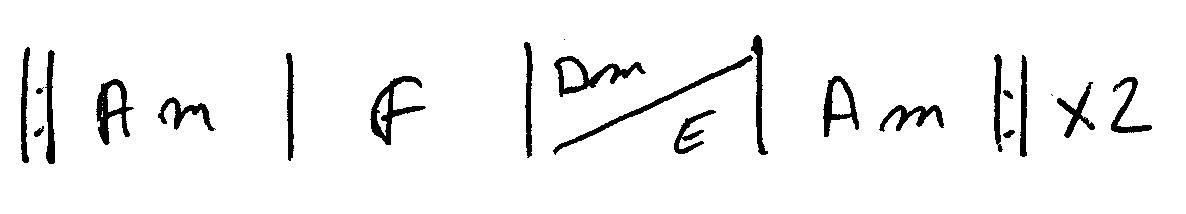 ||: Am | F | Dm / E | Am :|| x2